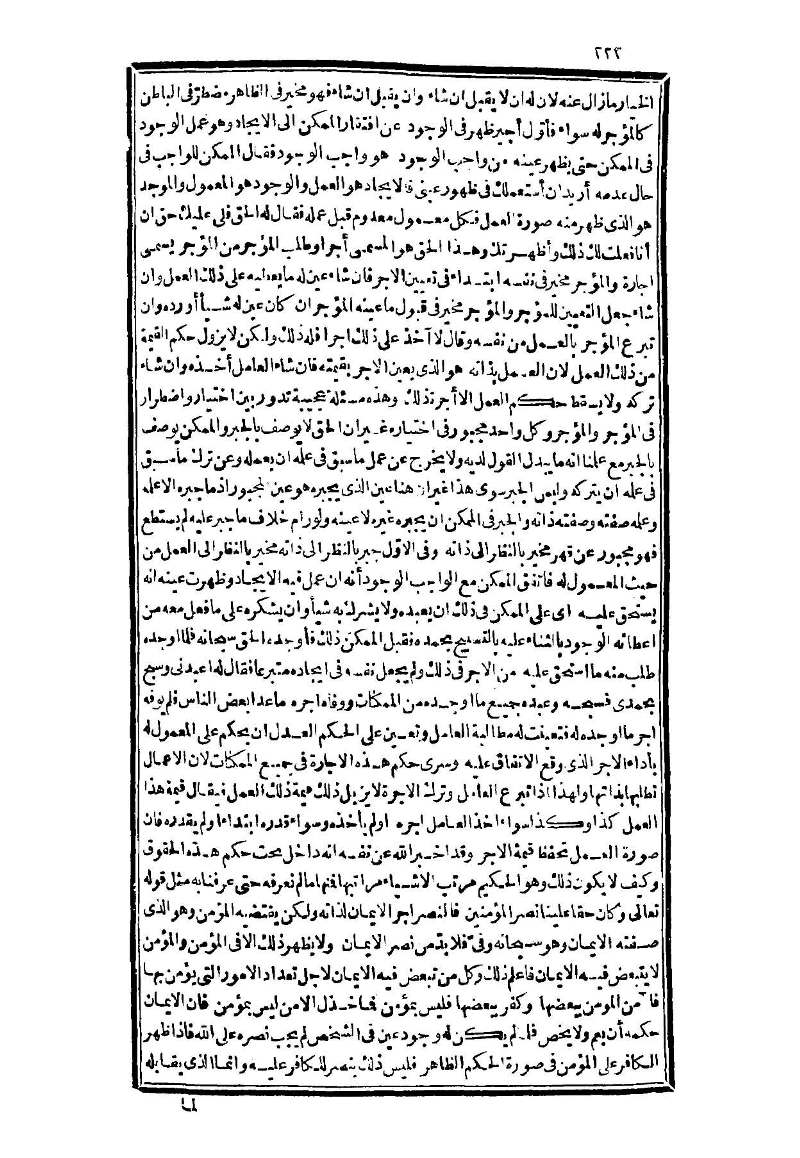 ٢٢٣
الخيار ما زال عنه لان له ان لا يقبل ان شاء وان يقبل ان شاء فهو مخير فى الظاهر مضطر فى الباطن
كالمؤجر له سواء فأول أجير ظهر فى الوجود عن افتقار الممكن الى الايجاد وهو عمل الوجود
فى الممكن حتى يظهر عينه من واجب الوجود هو واجب الوجود فقال الممكن للواجب فى
حال عدمه أريد ان أستعملك فى ظهور عينى فالايجاد هو العمل والوجود هو المعمول والموجد
هو الذى ظهر منه صورة العمل فكل معمول معدوم قبل عمله فقال له الحق فلى عليك حق ان
أنا فعلت لك ذلك وأظهرتك وهذا الحق هو المسمى أجرا وطلب المؤجر من المؤجر يسمى
اجارة والمؤجر مخير فى نفسه ابتداء فى تعيين الاجر فان شاء عين له ما يعطيه على ذلك العمل وان
شاء جعل التعيين للمؤجر والمؤجر مخير فى قبول ما عينه المؤجر ان كان عين له شيأ أو رده وان
تبرع المؤجر بالعمل من نفسه وقال لا آخذ على ذلك اجرا فله ذلك ولكن لا يزول حكم القيمة
من ذلك العمل لان العمل بذاته هو الذى يعين الاجر بقيمته فان شاء العامل أخذه وان شاء
تركه ولا يسقط حكم العمل الا أجرة ذلك وهذه مسئلة عجيبة تدور بين اختيار واضطرار
فى المؤجر والمؤجر وكل واحد مجبور فى اختياره غير ان الحق لا يوصف بالجبر والممكن يوصف
بالجبر مع علمنا انه ما يبدل القول لديه ولا يخرج عن عمل ما سبق فى علمه ان يعمله وعن ترك ما سبق
فى علمه ان يتركه وليس الجبر سوى هذا غير ان هنا عين الذى يجبره هو عين المجبور اذ ما جبره الا علمه
وعلمه صفته وصفته ذاته والجبر فى الممكن ان يجبره غيره لا عينه ولو رام خلاف ما جبر عليه لم يستطع
فهو مجبور عن قهر مخير بالنظر الى ذاته وفى الاول جبر بالنظر الى ذاته مخير بالنظر الى العمل من
حيث المعمول له فاتفق الممكن مع الواجب الوجود أنه ان عمل فيه الايجاد وظهرت عينه انه
يستحق عليه اى على الممكن فى ذلك ان يعبده ولا يشرك به شيأ وان يشكره على ما فعل معه من
اعطائه الوجود بالثناء عليه بالتسبيح بحمده فقبل الممكن ذلك فأوجده الحق سبحانه فلما اوجده
طلب منه ما استحق عليه من الاجر فى ذلك ولم يجعل نفسه فى ايجاده متبرعا فقال له اعبدنى وسبح
بحمدى فسبحه وعبده جميع ما اوجده من الممكنات ووفاه اجره ما عدا بعض الناس فلم يوفه
اجر ما اوجده له فتعينت له مطالبة العامل وتعين على الحكم العدل ان يحكم على المعمول له
بأداء الاجر الذى وقع الاتفاق عليه وسرى حكم هذه الاجارة فى جميع الممكنات لان الاعمال
تطلبها بذاتها ولهذا اذا تبرع العامل وترك الاجرة لا يزيل ذلك قيمة ذلك العمل فيقال قيمة هذا
العمل كذا وكذا سواء اخذ العامل اجره او لم يأخذه وسواء قدره ابتداء او لم يقدره فان
صورة العمل تحفظ قيمة الاجر وقد اخبر الله عن نفسه انه داخل تحت حكم هذه الحقوق
وكيف لا يكون ذلك وهو الحكيم مرتب الاشياء مراتبها فمنها ما لم نعرفه حتى عرفنا به مثل قوله
تعالى وكان حقا علينا نصر المؤمنين فالنصر اجر الايمان لذاته ولكن يقتضيه المؤمن وهو الذى
صفته الايمان وهو سبحانه وفى فلا بد من نصر الايمان ولا يظهر ذلك الا فى المؤمن والمؤمن
لا يتبعض فيه الايمان فاعلم ذلك وكل من تبعض فيه الايمان لاجل تعداد الامور التى يؤمن بها
فآمن المؤمن ببعضها وكفر ببعضها فليس بمؤمن فما خذل الا من ليس بمؤمن فان الايمان
حكمه أن يعم ولا يخص فلما لم يكن له وجود عين فى الشخص لم يجب نصره على الله فاذا ظهر
الكافر على المؤمن فى صورة الحكم الظاهر فليس ذلك بنصر للكافر عليه وانما الذى يقابله